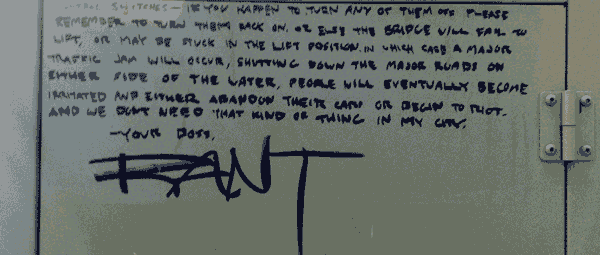 SWITCHES - IF YOU HAPPEN TO TURN ANY OF THEM OFF PLEASE
REMEMBER TO TURN THEM BACK ON. OR ELSE THE BRIDGE WILL FAIL TO
LIFT, OR MAY BE STUCK IN THE LIFT POSITION. IN WHICH CASE A MAJOR
TRAFFIC JAM WILL OCCUR, SHUTTING DOWN THE MAJOR ROADS ON
EITHER SIDE OF THE WATER, PEOPLE WILL EVENTUALLY BECOME
IRRITATED AND EITHER ABANDON THEIR CARS OR BEGIN TO RIOT.
AND WE DONT NEED THAT KIND OF THING IN MY CITY.
-YOUR BOSS,